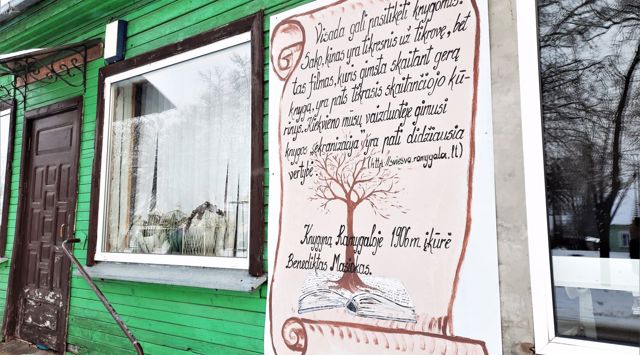 Visada gali pasitikėti knygomis.
Sako, kinas yra tikresnis už tikrovę, bet
tas filmas, kuris gimsta skaitant gerą
knygą, yra pats tikrasis skaitančiojo kū-
rinys. Kiekvieno mūsų vaizduotėje gimusi
knygos „ekranizacija" yra pati didžiausia
vertybė.
(http://sviesva.ramygala.lt)
Knygyną Ramygaloje 1906 m. įkūrė
Benediktas Masiokas.